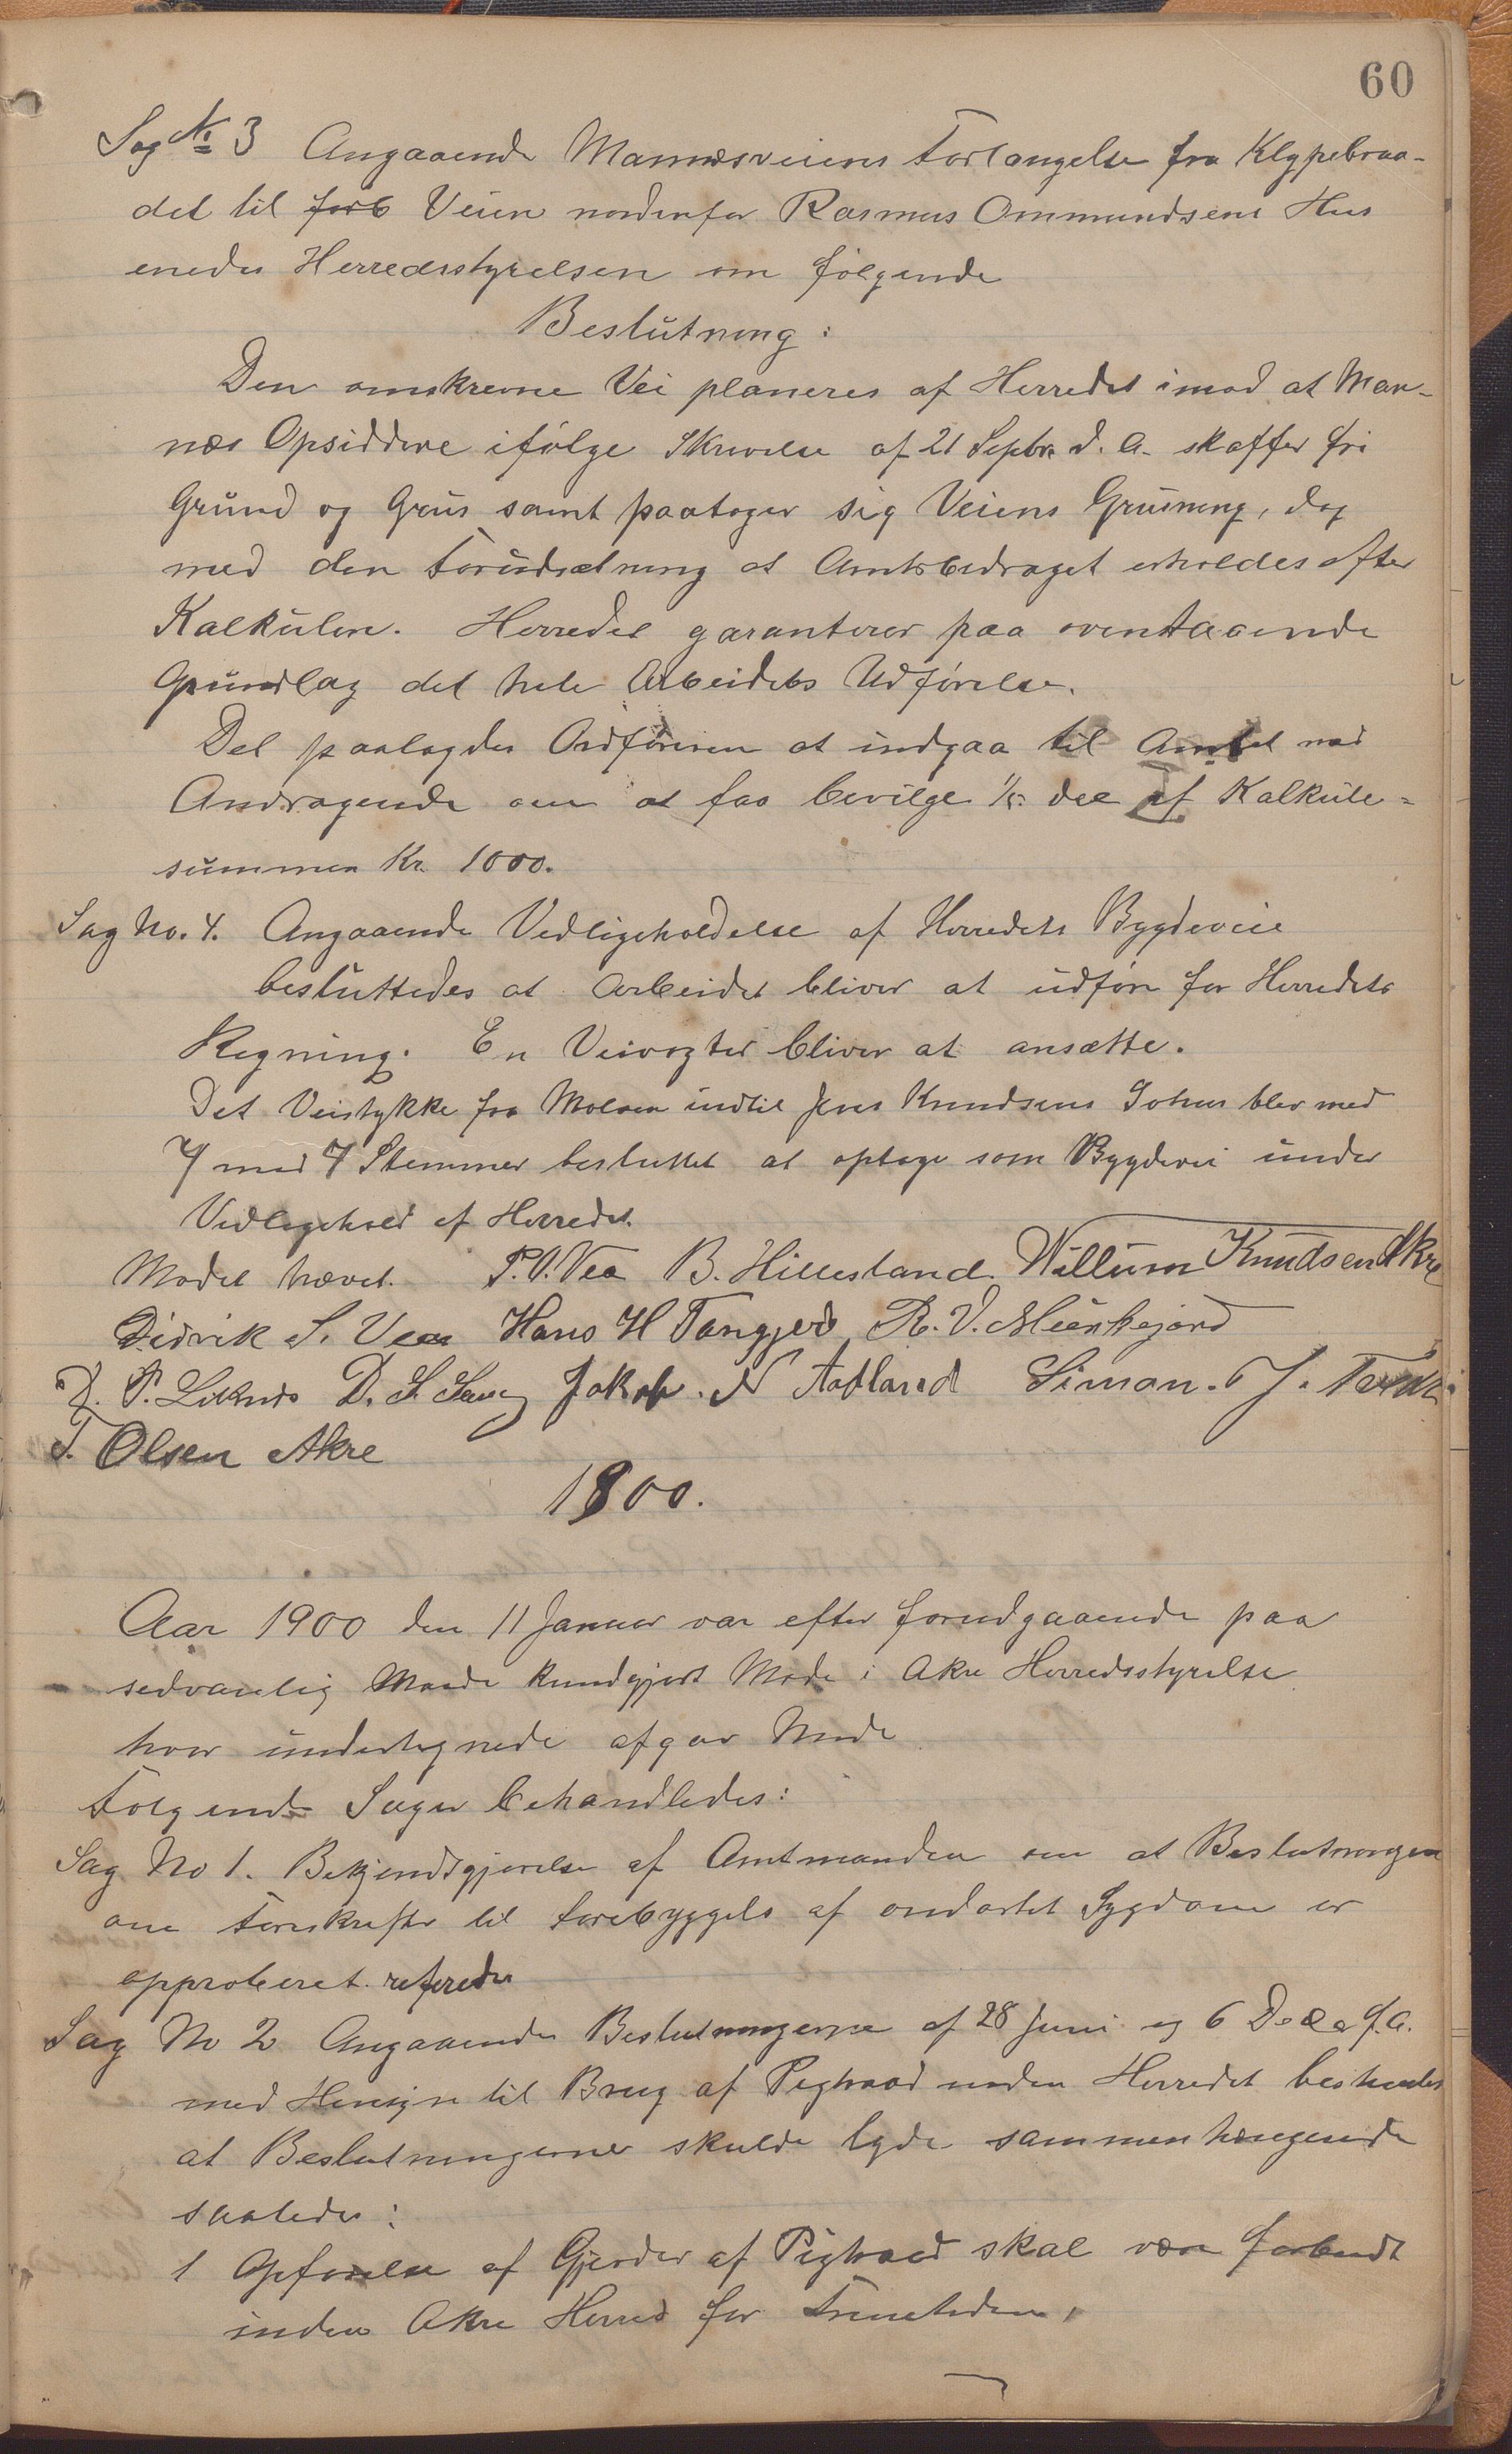 60
Sag № 3 Angaaende Mannesveiens Forlængelse fra Klypebraa-
det til forb Veien nordenfor Rasmus Ommundsens Hus
enedes Herredsstyrelsen om følgende
Beslutning:
Den omskrevne Vei planeres af Herredet imod at Man-
næs Opsiddere ifølge Skrivelse af 21 Septbr. d. A. skaffer fri
Grund og Grus samt paatager sig Veiens Grusning, dog
med den Forudsætning at Amtsbidraget erholdes efter
Kalkulen. Herredet garanterer paa ovenstaaende
Grundlag det hele Arbeidets Udførelse.
Det paalagdes Ordføreren at indgaa til Amtet med
Andragende om at faa bevilge 1/5 del af Kalkule-
summen Kr. 1000.
Sag No. 4. Angaaende Vedligeholdelse af Herredets Bygdeveie
besluttedes at Arbeidet bliver at udføre for Herredets
Regning. En Veivogter bliver at ansætte.
Det Veistykke fra Moloen indtil Jens Knudsens Sohus blev med
7 mod 7 Stemmer besluttet at optage som Bygdevei under
Vedligehold af Herredet.
Mødet hævet. P. V. Vea B. Hillesland Willum Knudsen Akre
Didrik S. Vea Hans H Tangjerd R. V. Munkejord
D. P. Liknæs D. S. Jakob. N Aadland Simon. J.
T. Olsen Akre
1900.
Aar 1900 den 11 Januar var efter forudgaaende paa
sedvanlig Maade kundgjort Møde i Akre Herredsstyrelse
hvor undertegnede afgav Møde
Følgende Sager behandledes:
Sag No 1. Bekjendtgjørelse af Amtmanden om at Beslutningen
om Forskrifter til Forebyggels af ondartet Sygdom er
approberet. refereredes
Sag No 2 Angaaende Beslutningerne af 28 Juni og 6 Decbr f. A.
med Hensyn til Brug af Pigtraad inden Herredet besluttedes
at Beslutningerne skulde lyde sammenhængende
saaledes:
1 Opførelse af Gjerder af Pigtraad skal være forbudt
inden Akre Herred for Fremtiden,